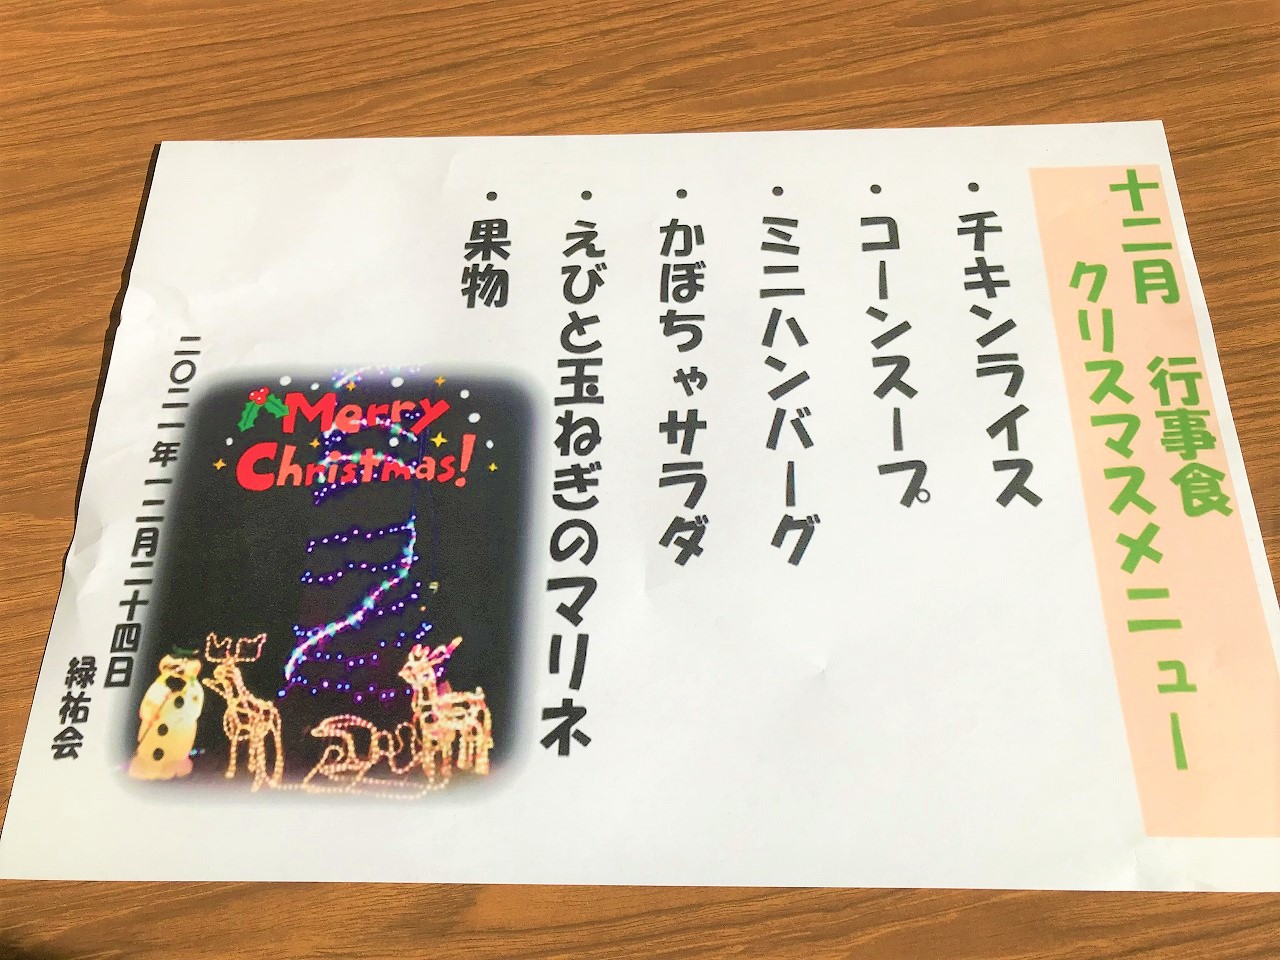 十二月　行事食
クリスマスメニュー
・チキンライス
・コーンスープ
・ミニハンバーグ
・かぼちゃサラダ
・えびと玉ねぎのマリネ
・果物
Merry
Christmas!
二〇二一年一二月二十四日
緑祐会